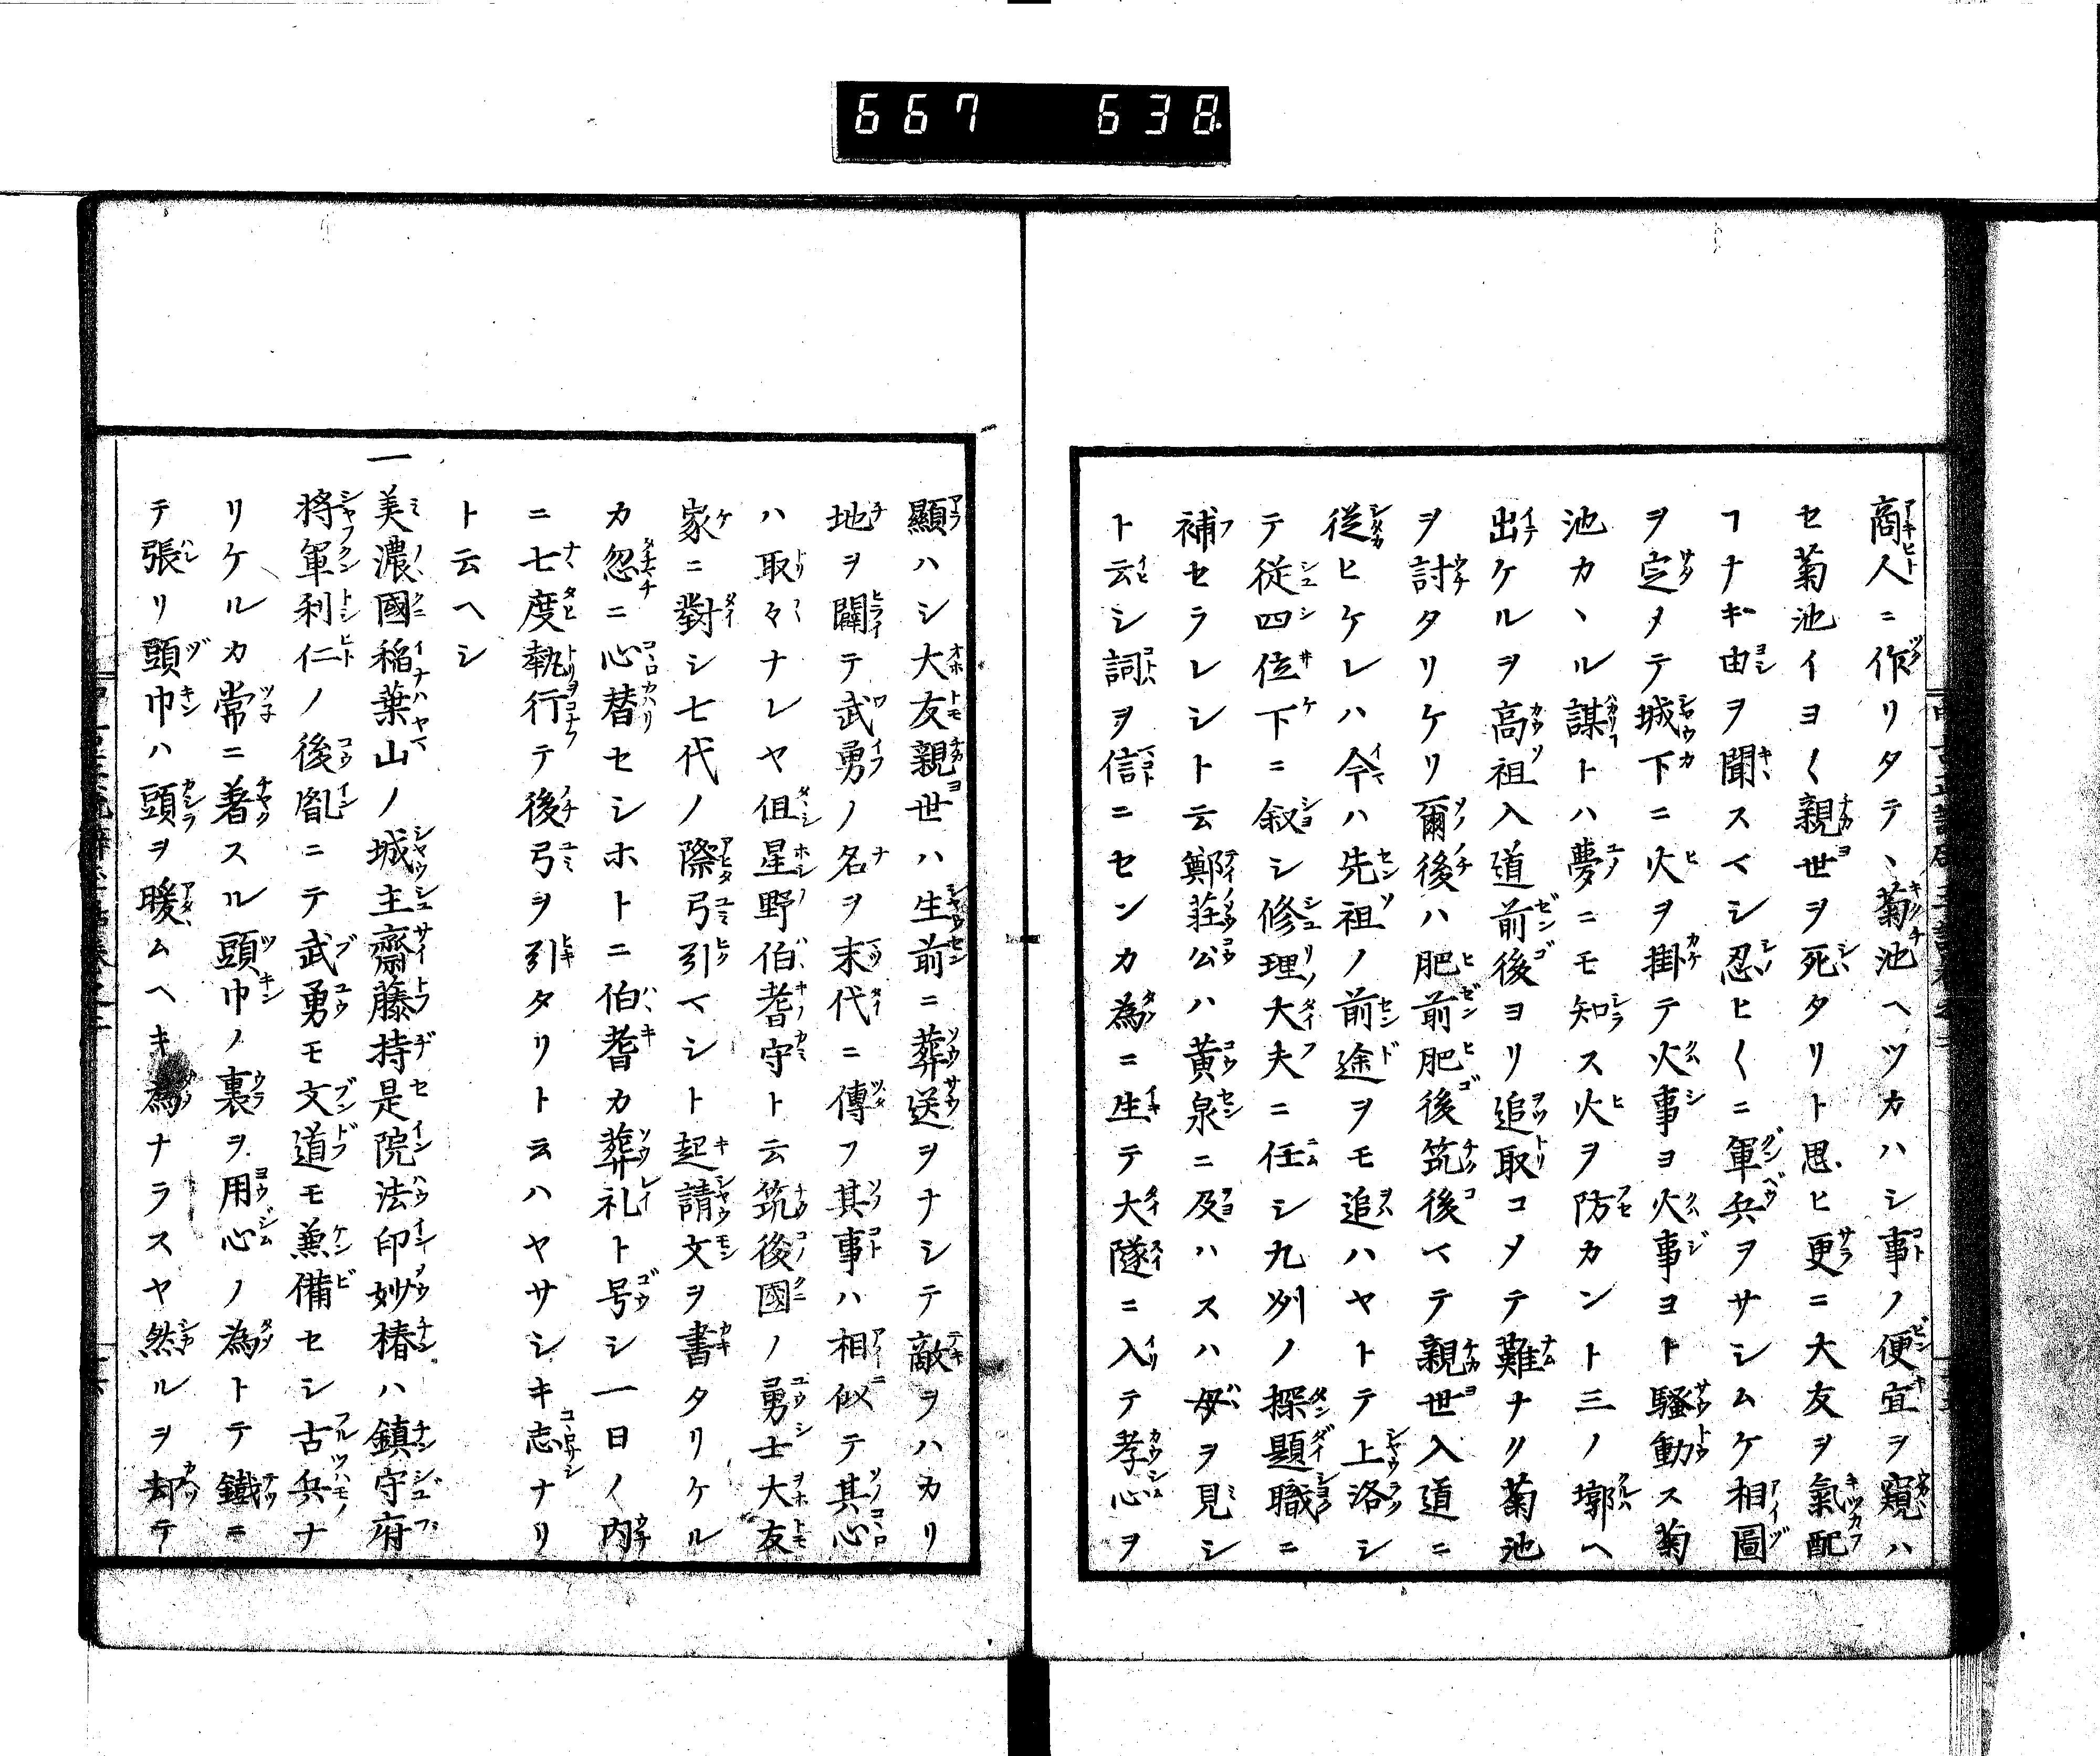 667 638
商人ニ作リタテヽ菊池ヘツカハシ事ノ便宜ヲ窺ハ
セ菊池イヨ〱親世ヲ死タリト思ヒ更ニ大友ヲ氣配
フナキ由ヲ聞スマシ忍ヒ〱ニ軍兵ヲサシムケ相圖
ヲ定メテ城下ニ火ヲ掛テ火事ヨ火事ヨト騒動ス菊
池カヽル謀トハ夢ニモ知ス火ヲ防カント三ノ墎ヘ
出ケルヲ高祖入道前後ヨリ追取コメテ難ナリ菊池
ヲ討タリケリ爾後ハ肥前肥後筑後マテ親世入道ニ
從ヒケレハ今ハ先祖ノ前途ヲモ追ハヤトテ上洛シ
テ従四位下ニ叙シ修理大夫ニ任シ九州ノ探題職ニ
補セラレシト云鄭莊公ハ黄泉ニ及ハスハ母ヲ見シ
ト云シ詞ヲ信ニセンカ為ニ生テ大隧ニ入テ孝心ヲ
顯ハシ大友親世ハ生前ニ葬送ヲナシテ敵ヲハカリ
地ヲ闢テ武勇ノ名ヲ末代ニ傳フ其事ハ相似テ其心
ハ取々ナレヤ伹星野伯耆守ト云筑後國ノ勇士大友
家ニ對シ七代ノ際弓引マシト起請文ヲ書タリケル
カ忽ニ心替セシホトニ伯耆カ葬礼ト号シ一日ノ内
ニ七度執行テ後弓ヲ引タリト云ハヤサシキ志ナリ
ト云ヘシ
一美濃國稲葉山ノ城主齋藤持是院法印妙椿ハ鎮守府
將軍利仁ノ後胤ニテ武勇モ文道モ兼備セシ古兵ナ
リケルカ常ニ著スル頭巾ノ裏ヲ用心ノ為トテ鐵ニ
テ張リ頭巾ハ頭ヲ暖ムヘキ為ナラスヤ然ルヲ却テ